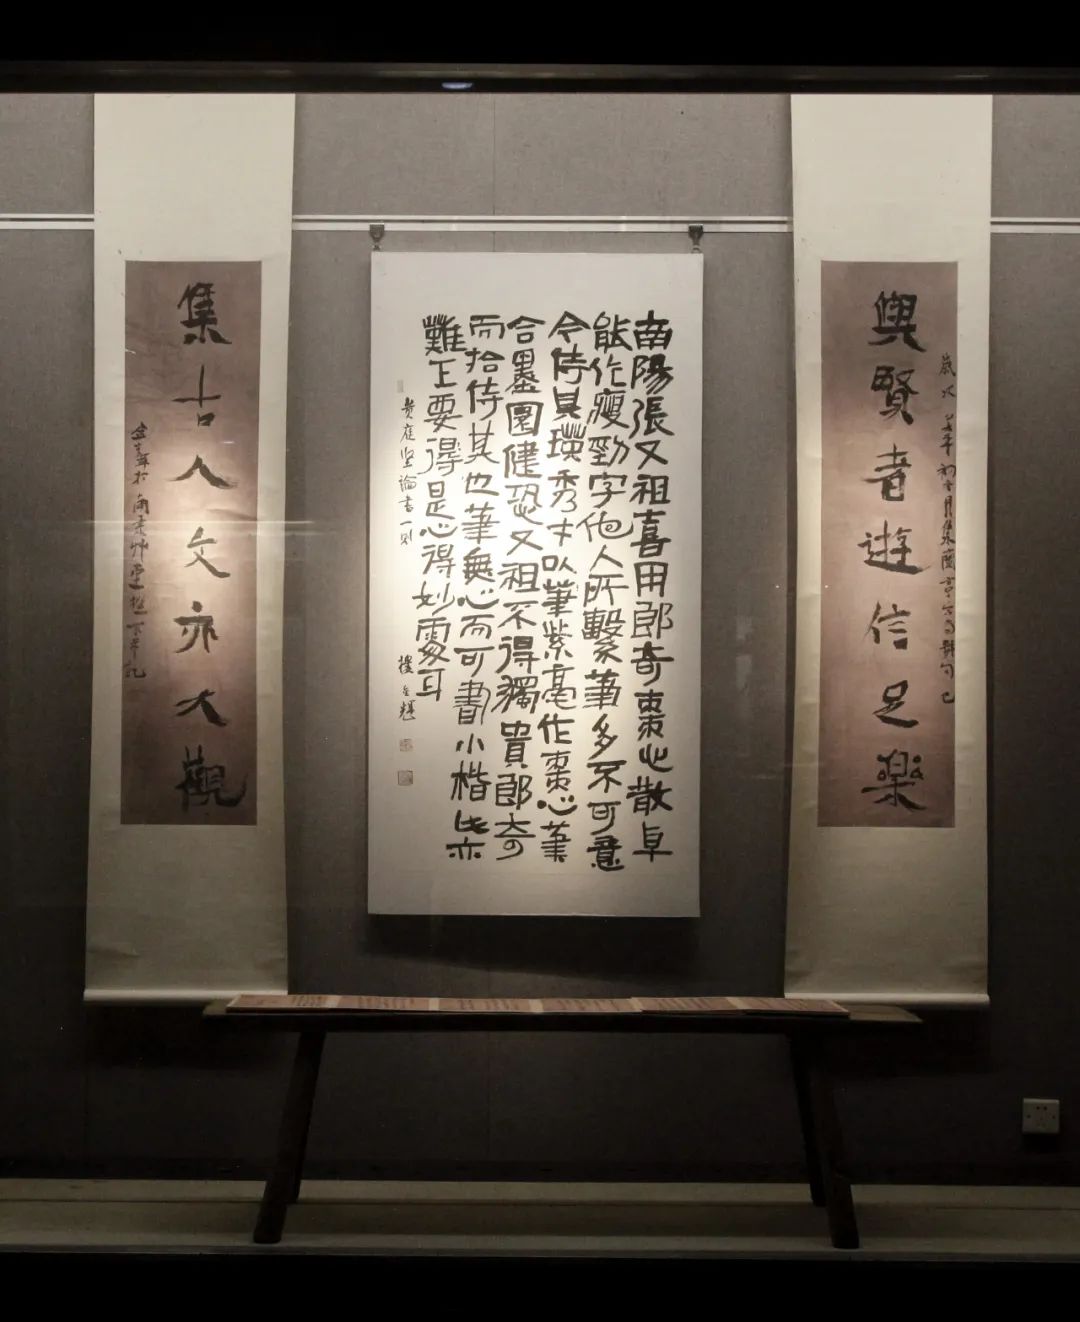 與賢者遊信足樂
南陽張又祖喜用郎奇棗心散卓
能作瘦勁字他人所繫筆多不可意
今侍其瑛秀才以筆紫毫作棗心筆
含墨圓健恐又祖不得獨貴郎奇
而拾侍其也筆無心而可書小楷此亦
難工要得是心得妙處耳
黄庭坚論書一则
集古人文亦大觀